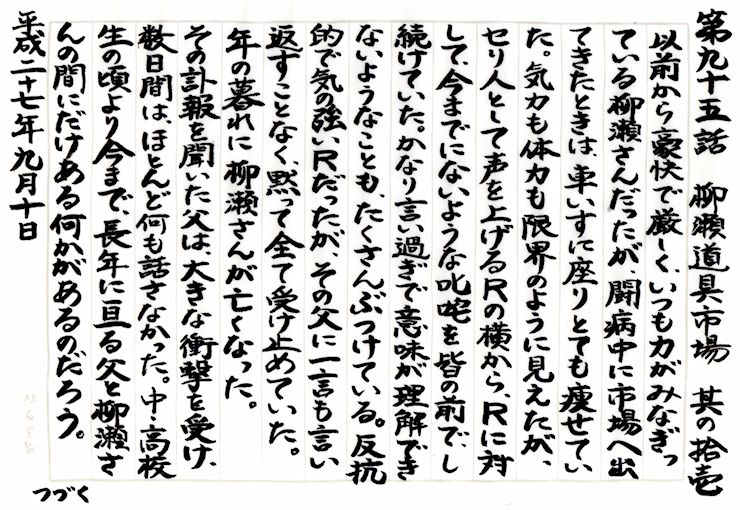 第九十五話　柳瀬道具市場　其の拾壱
以前から豪快で厳しく、いつも力がみなぎっ
ている柳瀬さんだったが、闘病中に市場へ出
てきたときは、車いすに座りとても痩せてい
た。気力も体力も限界のように見えたが、
セリ人として声を上げるRの横から、Rに対
して、今までにないような叱咤を皆の前で、し
続けていた。かなり言い過ぎで意味が理解でき
ないようなことも、たくさんぶつけている。反抗
的で気の強いRだったが、その父に一言も言い
返すことなく、黙って全て受け止めていた。
年の暮れに柳瀬さんが亡くなった。
その訃報を聞いた父は大きな衝撃を受け、
数日間は、ほとんど何も話さなかった。中・高校
生の頃より今まで、長年に亘る父と柳瀬さ
んの間にだけある何かがあるのだろう。
平成二十七年九月十日
つづく